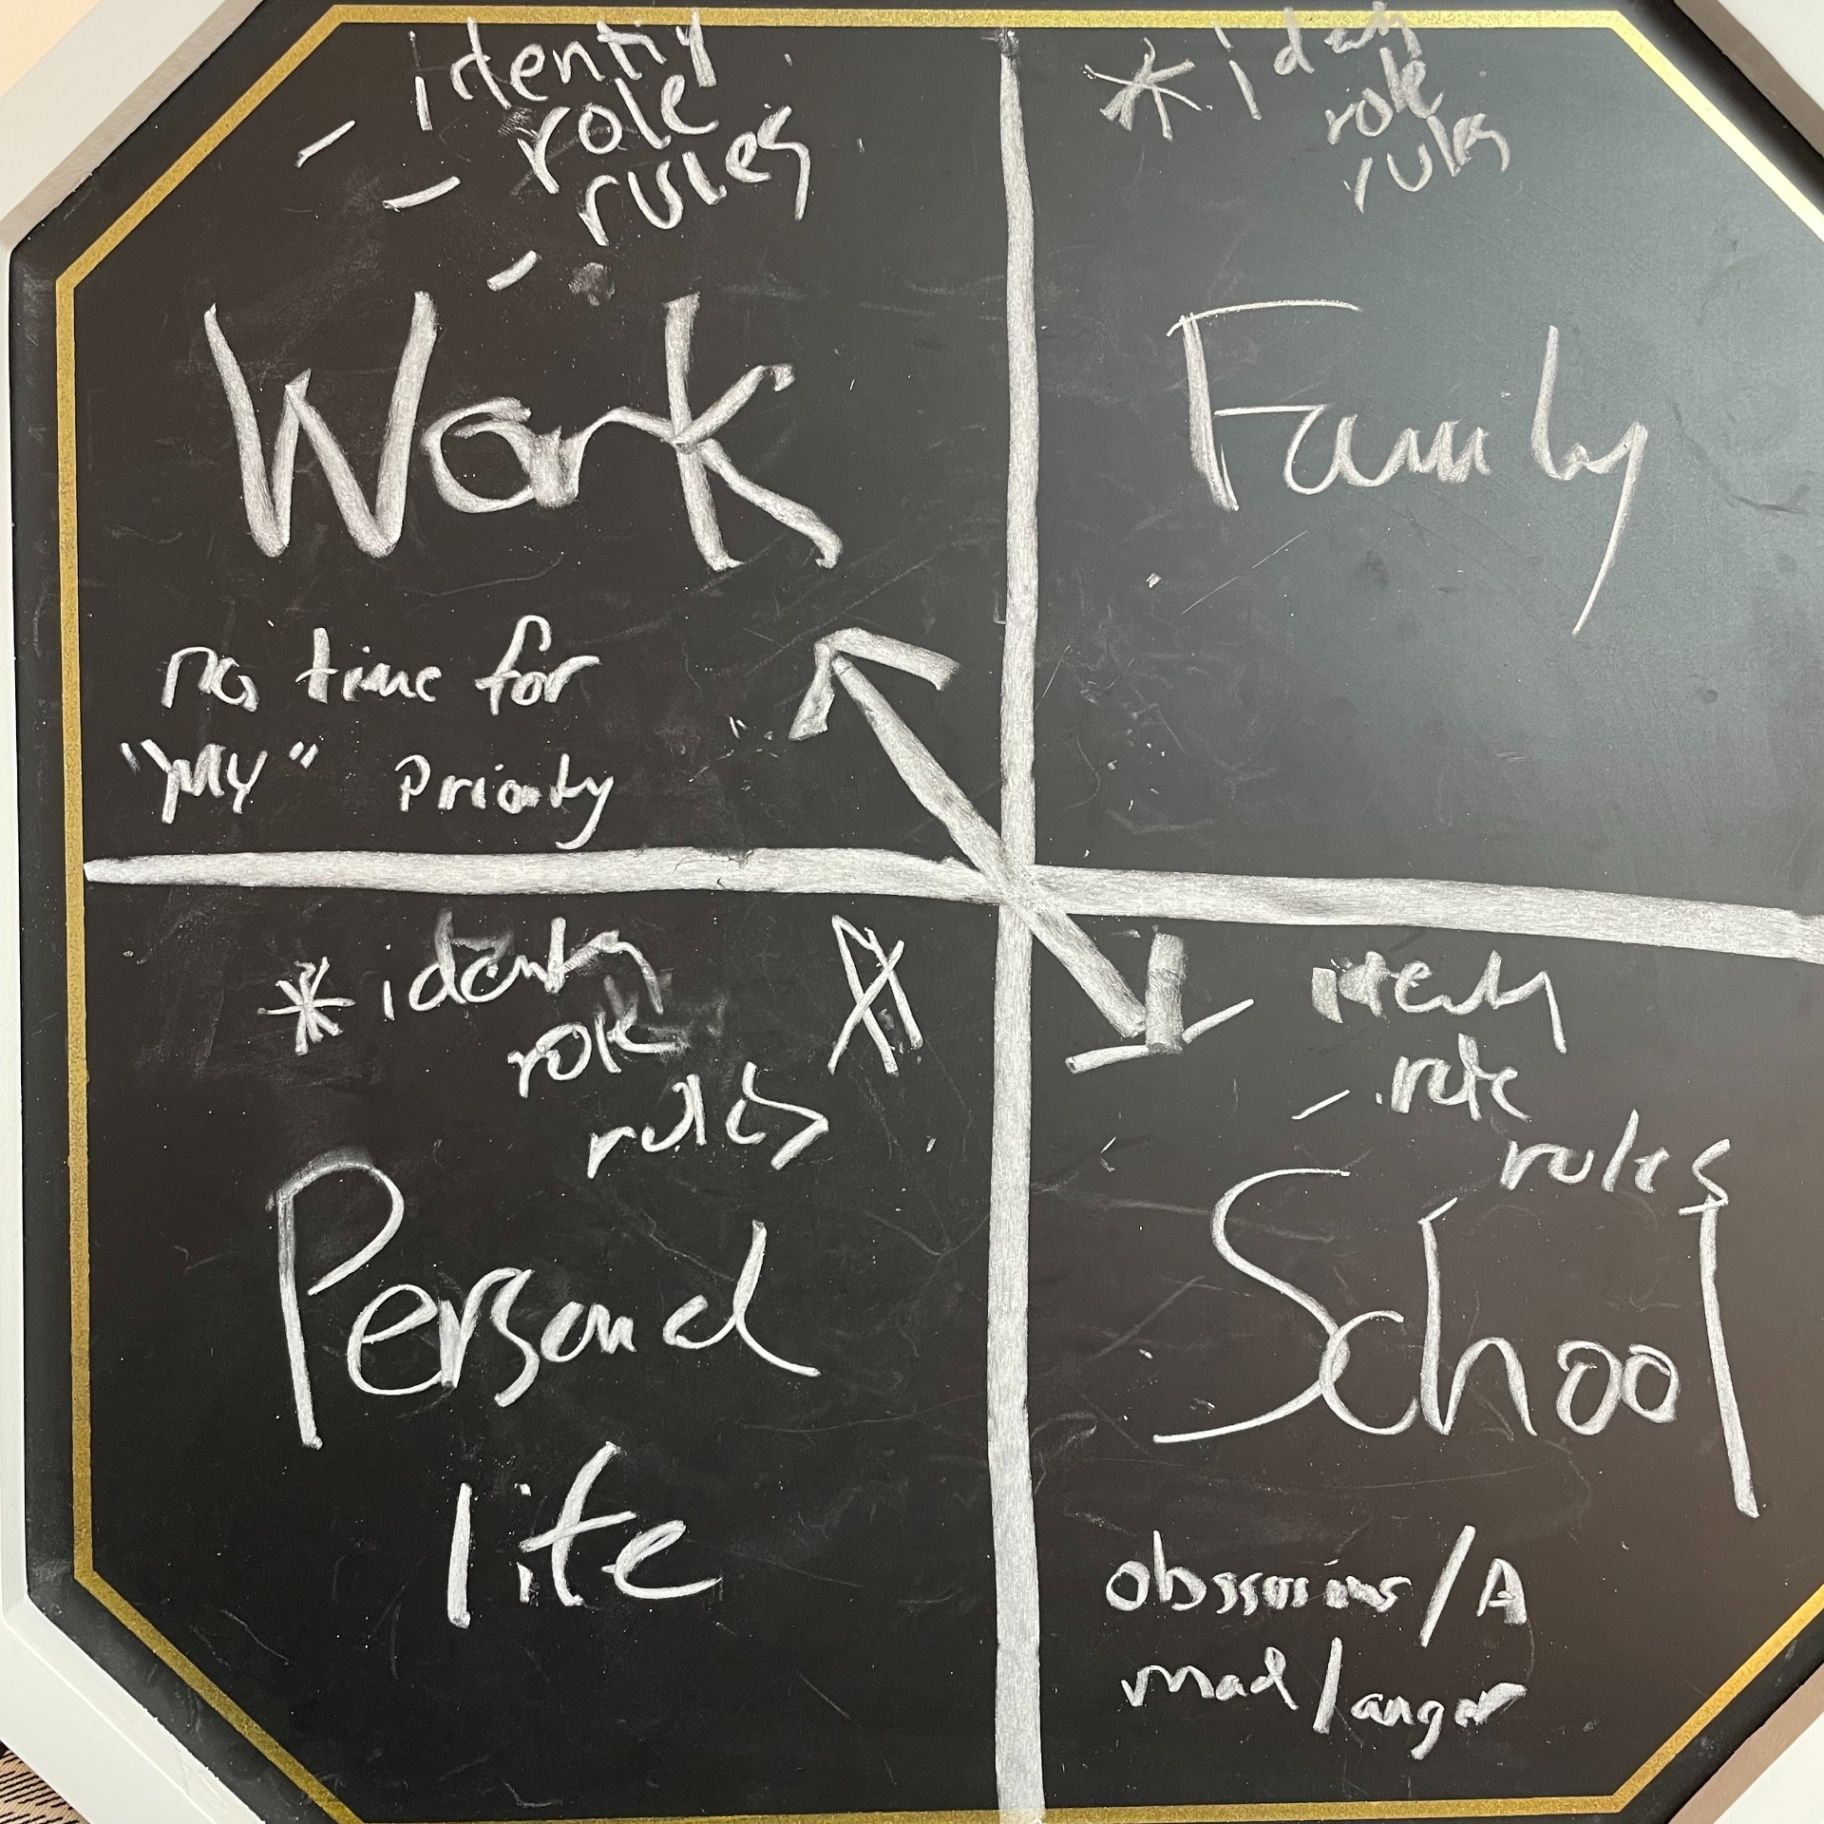 - identity
- role
- rules
Work
no time for
"MY" Priority
* identity
role
rules
Family
* identity
role
rules
Personal
life
identity
- role
rules
School
obsessions/A
mad/anger